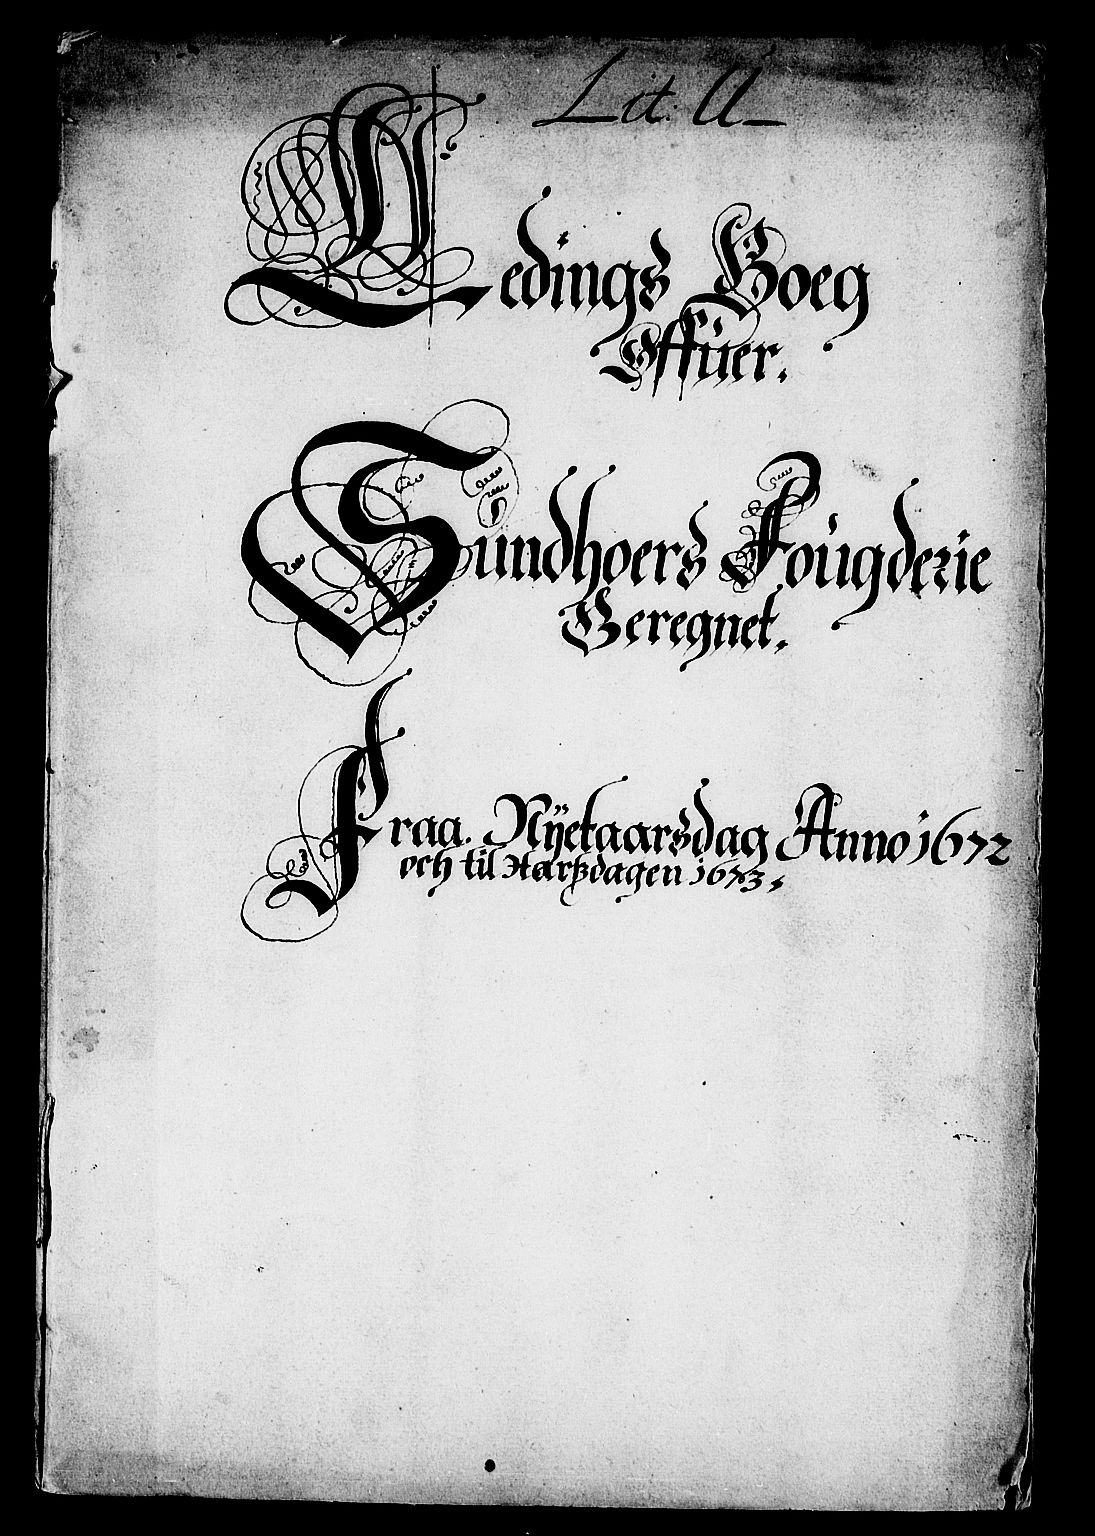 Lit: U
Ledings Boeg
Offüer.
Sündhoers Foügderie
Beregnet.
Fraa. Nÿetaarsdag Anno 1672
och til Aarßdagen 1673.